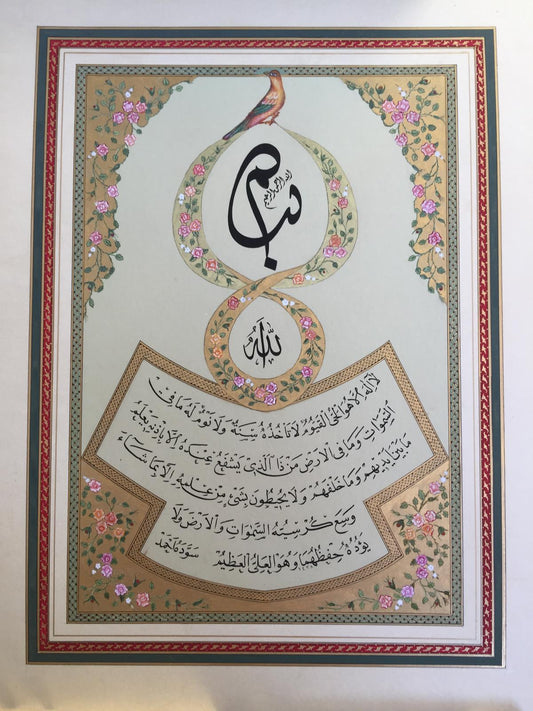 بسم
الله الرحمن الرحيم
الله
لا اله الا هو الحي القيوم لا تاخذه سنة ولا نوم له ما في
السموات وما في الارض من ذا الذي يشفع عنده الا باذنه يعلم
ما بين ايديهم وما خلفهم ولا يحيطون بشئ من علمه الا بما شاء
وسع كرسيه السموات والارض ولا
يؤده حفظهما وهو العلي العظيم